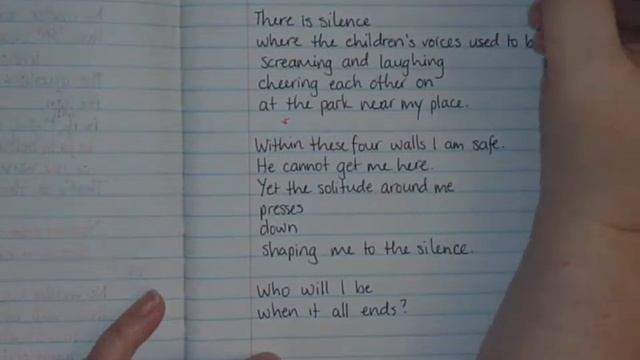 There is silence
where the children's voices used to
screaming and laughing
cheering each other on
at the park near my place.
Within these four walls I am safe.
He cannot get me here.
Yet the solitude around me
presses
down
shaping me to the silence.
Who will I be
when it all ends?